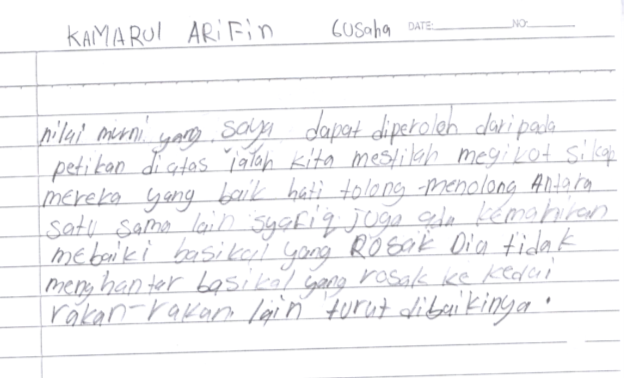 KAMARUl ARiFin 6Usaha DATE: NO:
nilai murni yang saya dapat diperoleh daripada
petikan diatas ialah kita mestilah megikot sikap
mereka yang baik hati tolong-menolong Antara
satu sama lain syafiq juga ada kemahiran
mebaiki basikal yang ROSak Dia tidak
menghantar basikal yang rosak ke kedai
rakan-rakan lain turut dibaikinya.